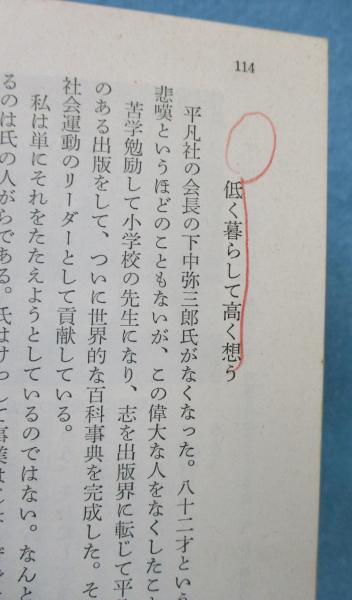 114
低く暮らして高く想う
平凡社の会長の下中弥三郎氏がなくなった。八十二才という
悲嘆というほどのこともないが、この偉大な人をなくしたこと
苦学勉励して小学校の先生になり、志を出版界に転じて平
のある出版をして、ついに世界的な百科事典を完成した。そ
社会運動のリーダーとして貢献している。
私は単にそれをたたえようとしているのではない。なんと
るのは氏の人がらである。氏はけっして